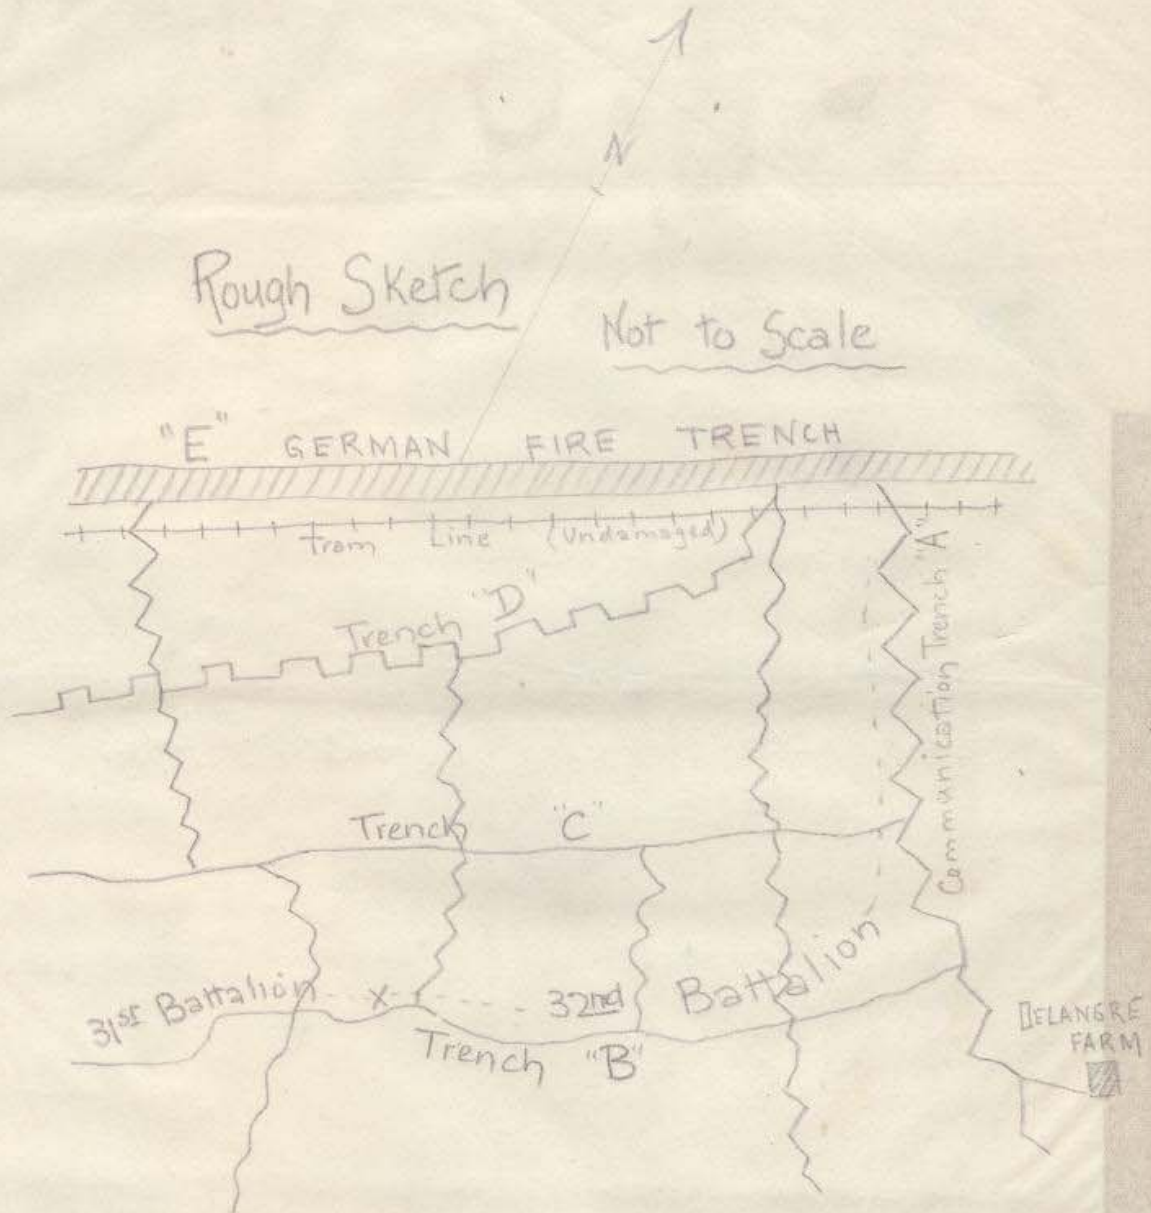 N
Rough Sketch
Not to Scale
"E" GERMAN FIRE TRENCH
Tram Line (Undamaged)
Trench "D"
Communication Trench "A"
Trench "C"
31st Battalion X 32nd Battalion
Trench "B"
DELANGRE
FARM